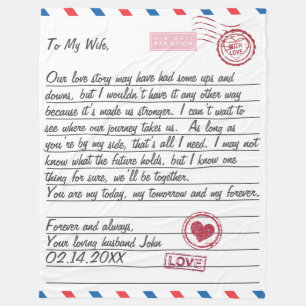 PAR AVION
WITH LOVE
To My Wife,
Our love story may have had some ups and
downs, but I wouldn't have it any other way
because it's made us stronger. I can't wait to
see where our journey takes us. As long as
you're by my side, that's all I need. I may not
know what the future holds, but I know one
thing for sure, we'll be together.
You are my today, my tomorrow and my forever.
Forever and always,
Your loving husband John
02.14.20XX
LOVE